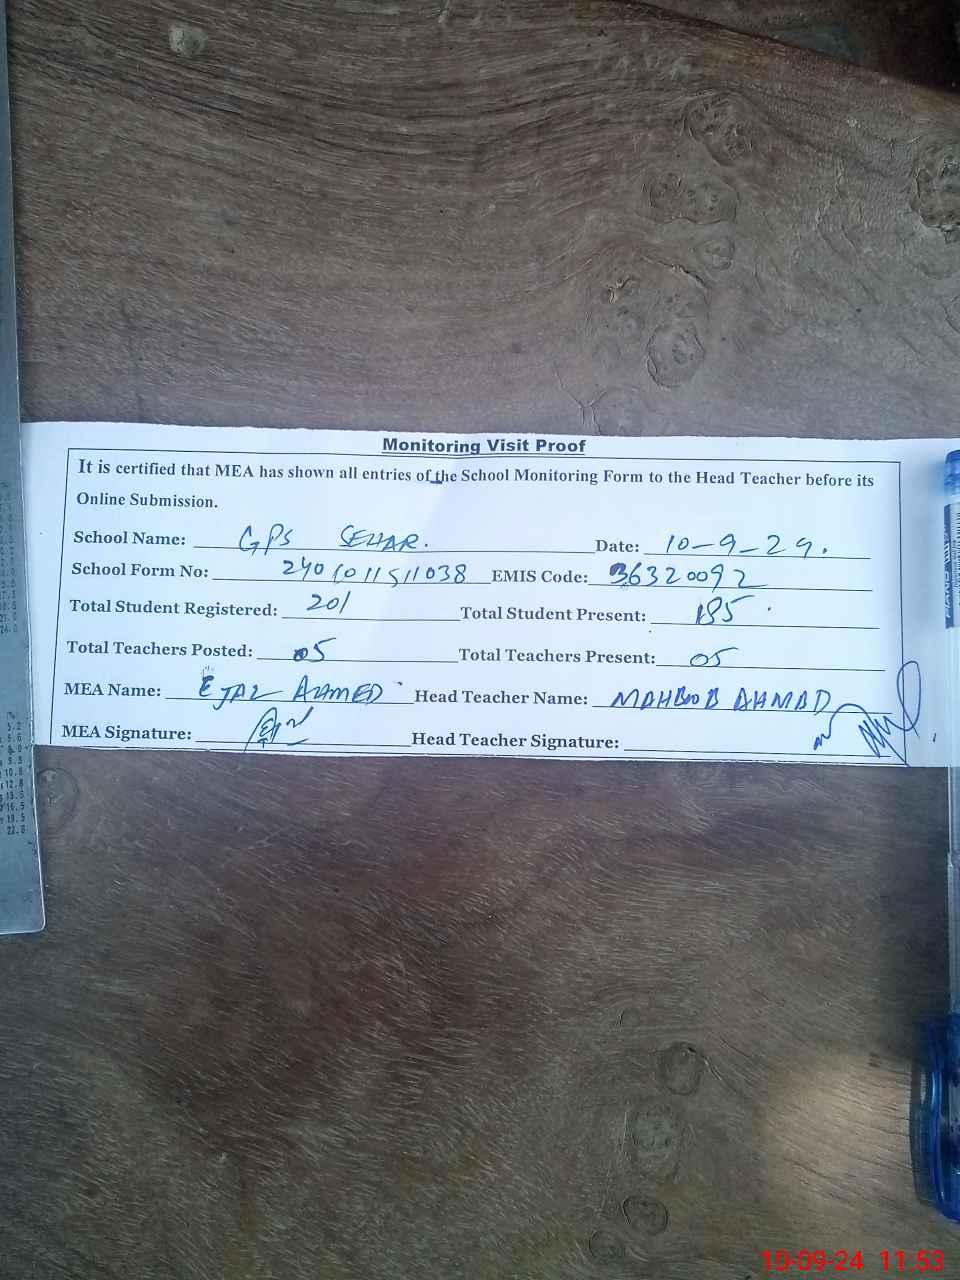 Monitoring Visit Proof
It is certified that MEA has shown all entries of the School Monitoring Form to the Head Teacher before its
Online Submission.
School Name: GPS SEHAR. Date: 10-9-24.
School Form No: EMIS Code: 36320092
Total Student Registered: 201 Total Student Present: 185
Total Teachers Posted: 05 Total Teachers Present: 05
MEA Name: EJAZ AHMED Head Teacher Name: MAHBOOB AHMAD
MEA Signature: Head Teacher Signature:
10-09-24 11:53